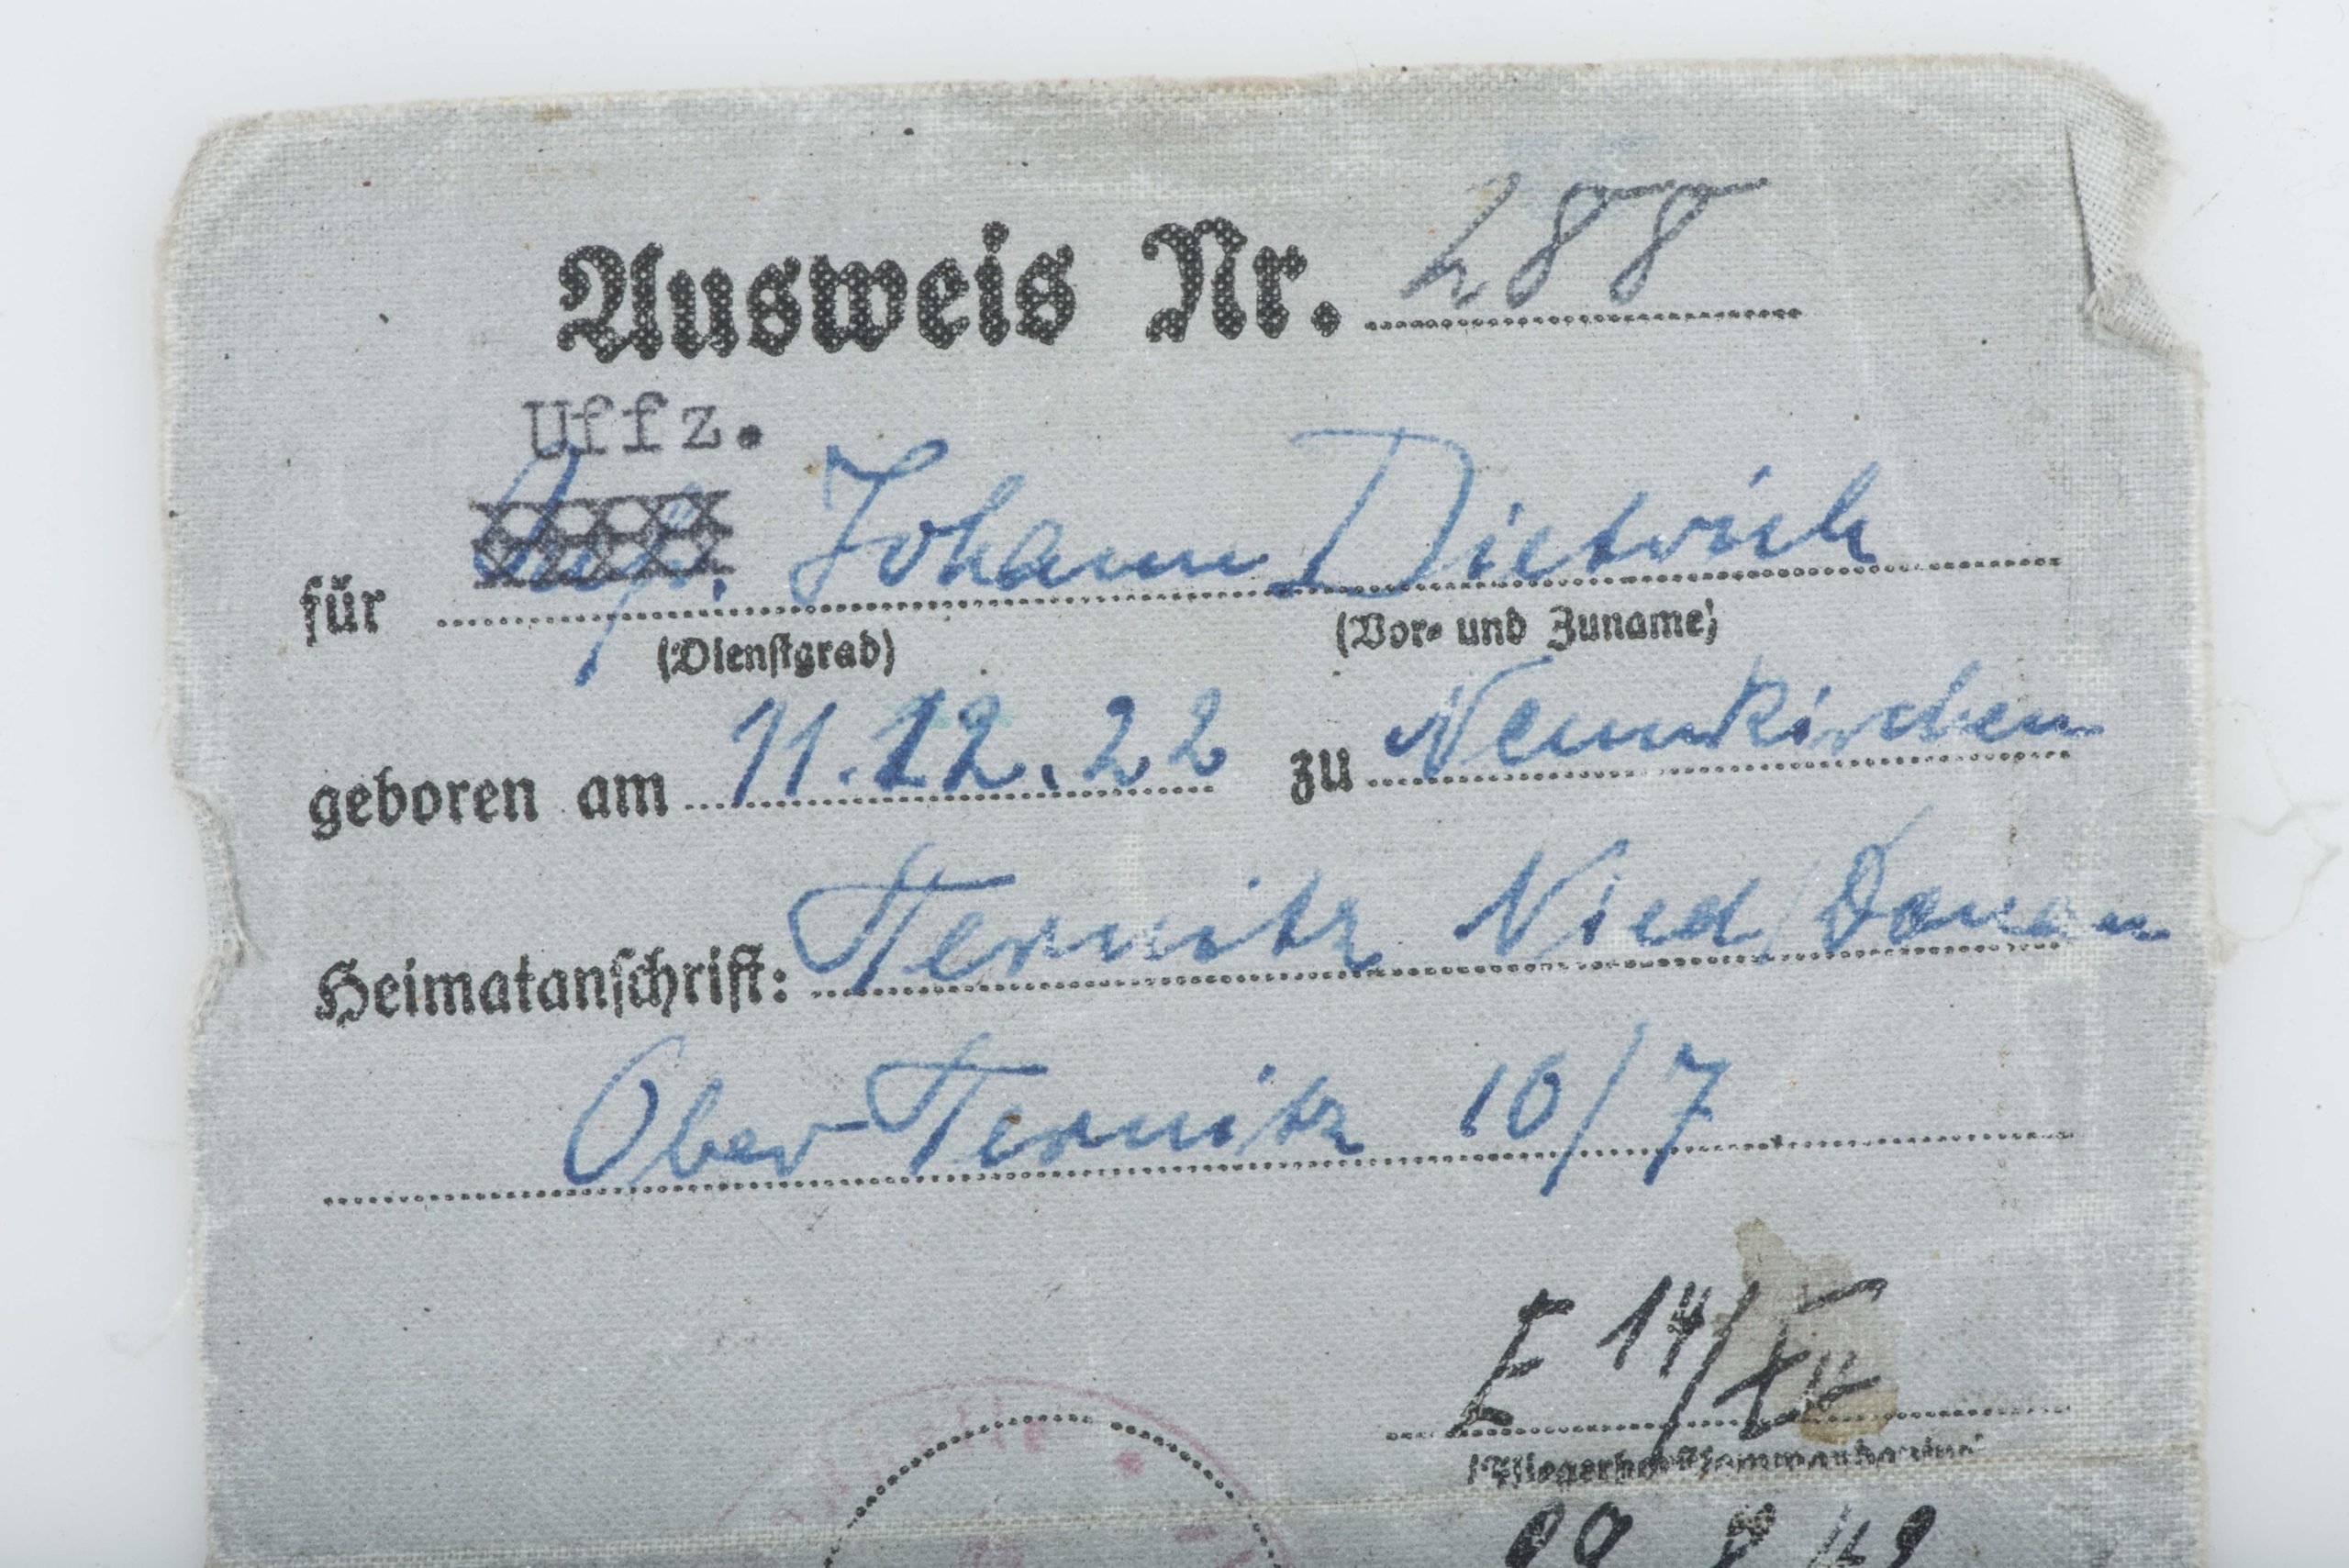 Ausweis Nr. 288
Uffz.
für Johann Dietrich
(Dienstgrad) (Vor- und Zuname)
geboren am 11.12.22 zu Neunkirchen
Heimatanschrift: Ternitz Nied/Donau
Ober-Ternitz 10/7
E 14/XII